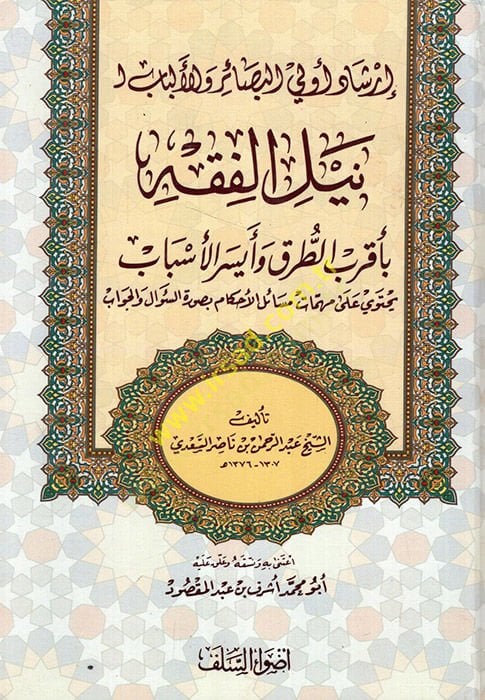 إرشاد أولي البصائر والألباب ل
نيل الفقه
بأقرب الطرق وأيسر الأسباب
يحتوي على مهمات مسائل الأحكام بصورة السؤال والجواب
تأليف
الشيخ عبد الرحمن بن ناصر السعدي
١٣٠٧ - ١٣٧٦ هـ
اعتنى به ونسقه وعلق عليه
أبو محمد أشرف بن عبد المقصود
أضواء السلف